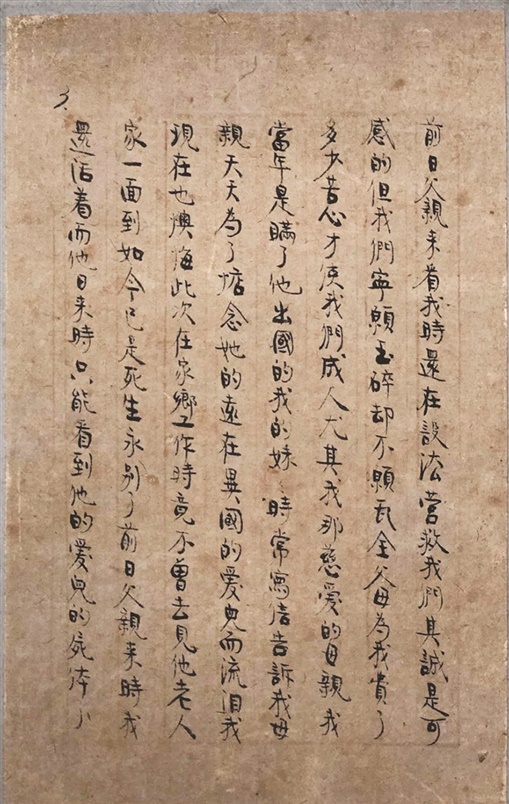 3.
前日父親来看我時還在設法营救我們其誠是可
感的但我們寧願玉碎却不願瓦全父母為我費了
多少苦心才使我們成人尤其我那慈爱的母親我
當年是瞞了他出國的我的妹〻時常寫信告訴我母
親天天為了惦念她的遠在異國的爱兒而流泪我
現在也懊悔此次在家鄉工作時竟不曾去見他老人
家一面到如今已是死生永别了前日父親来時我
還活着而他日来時只能看到他的爱兒的屍体了